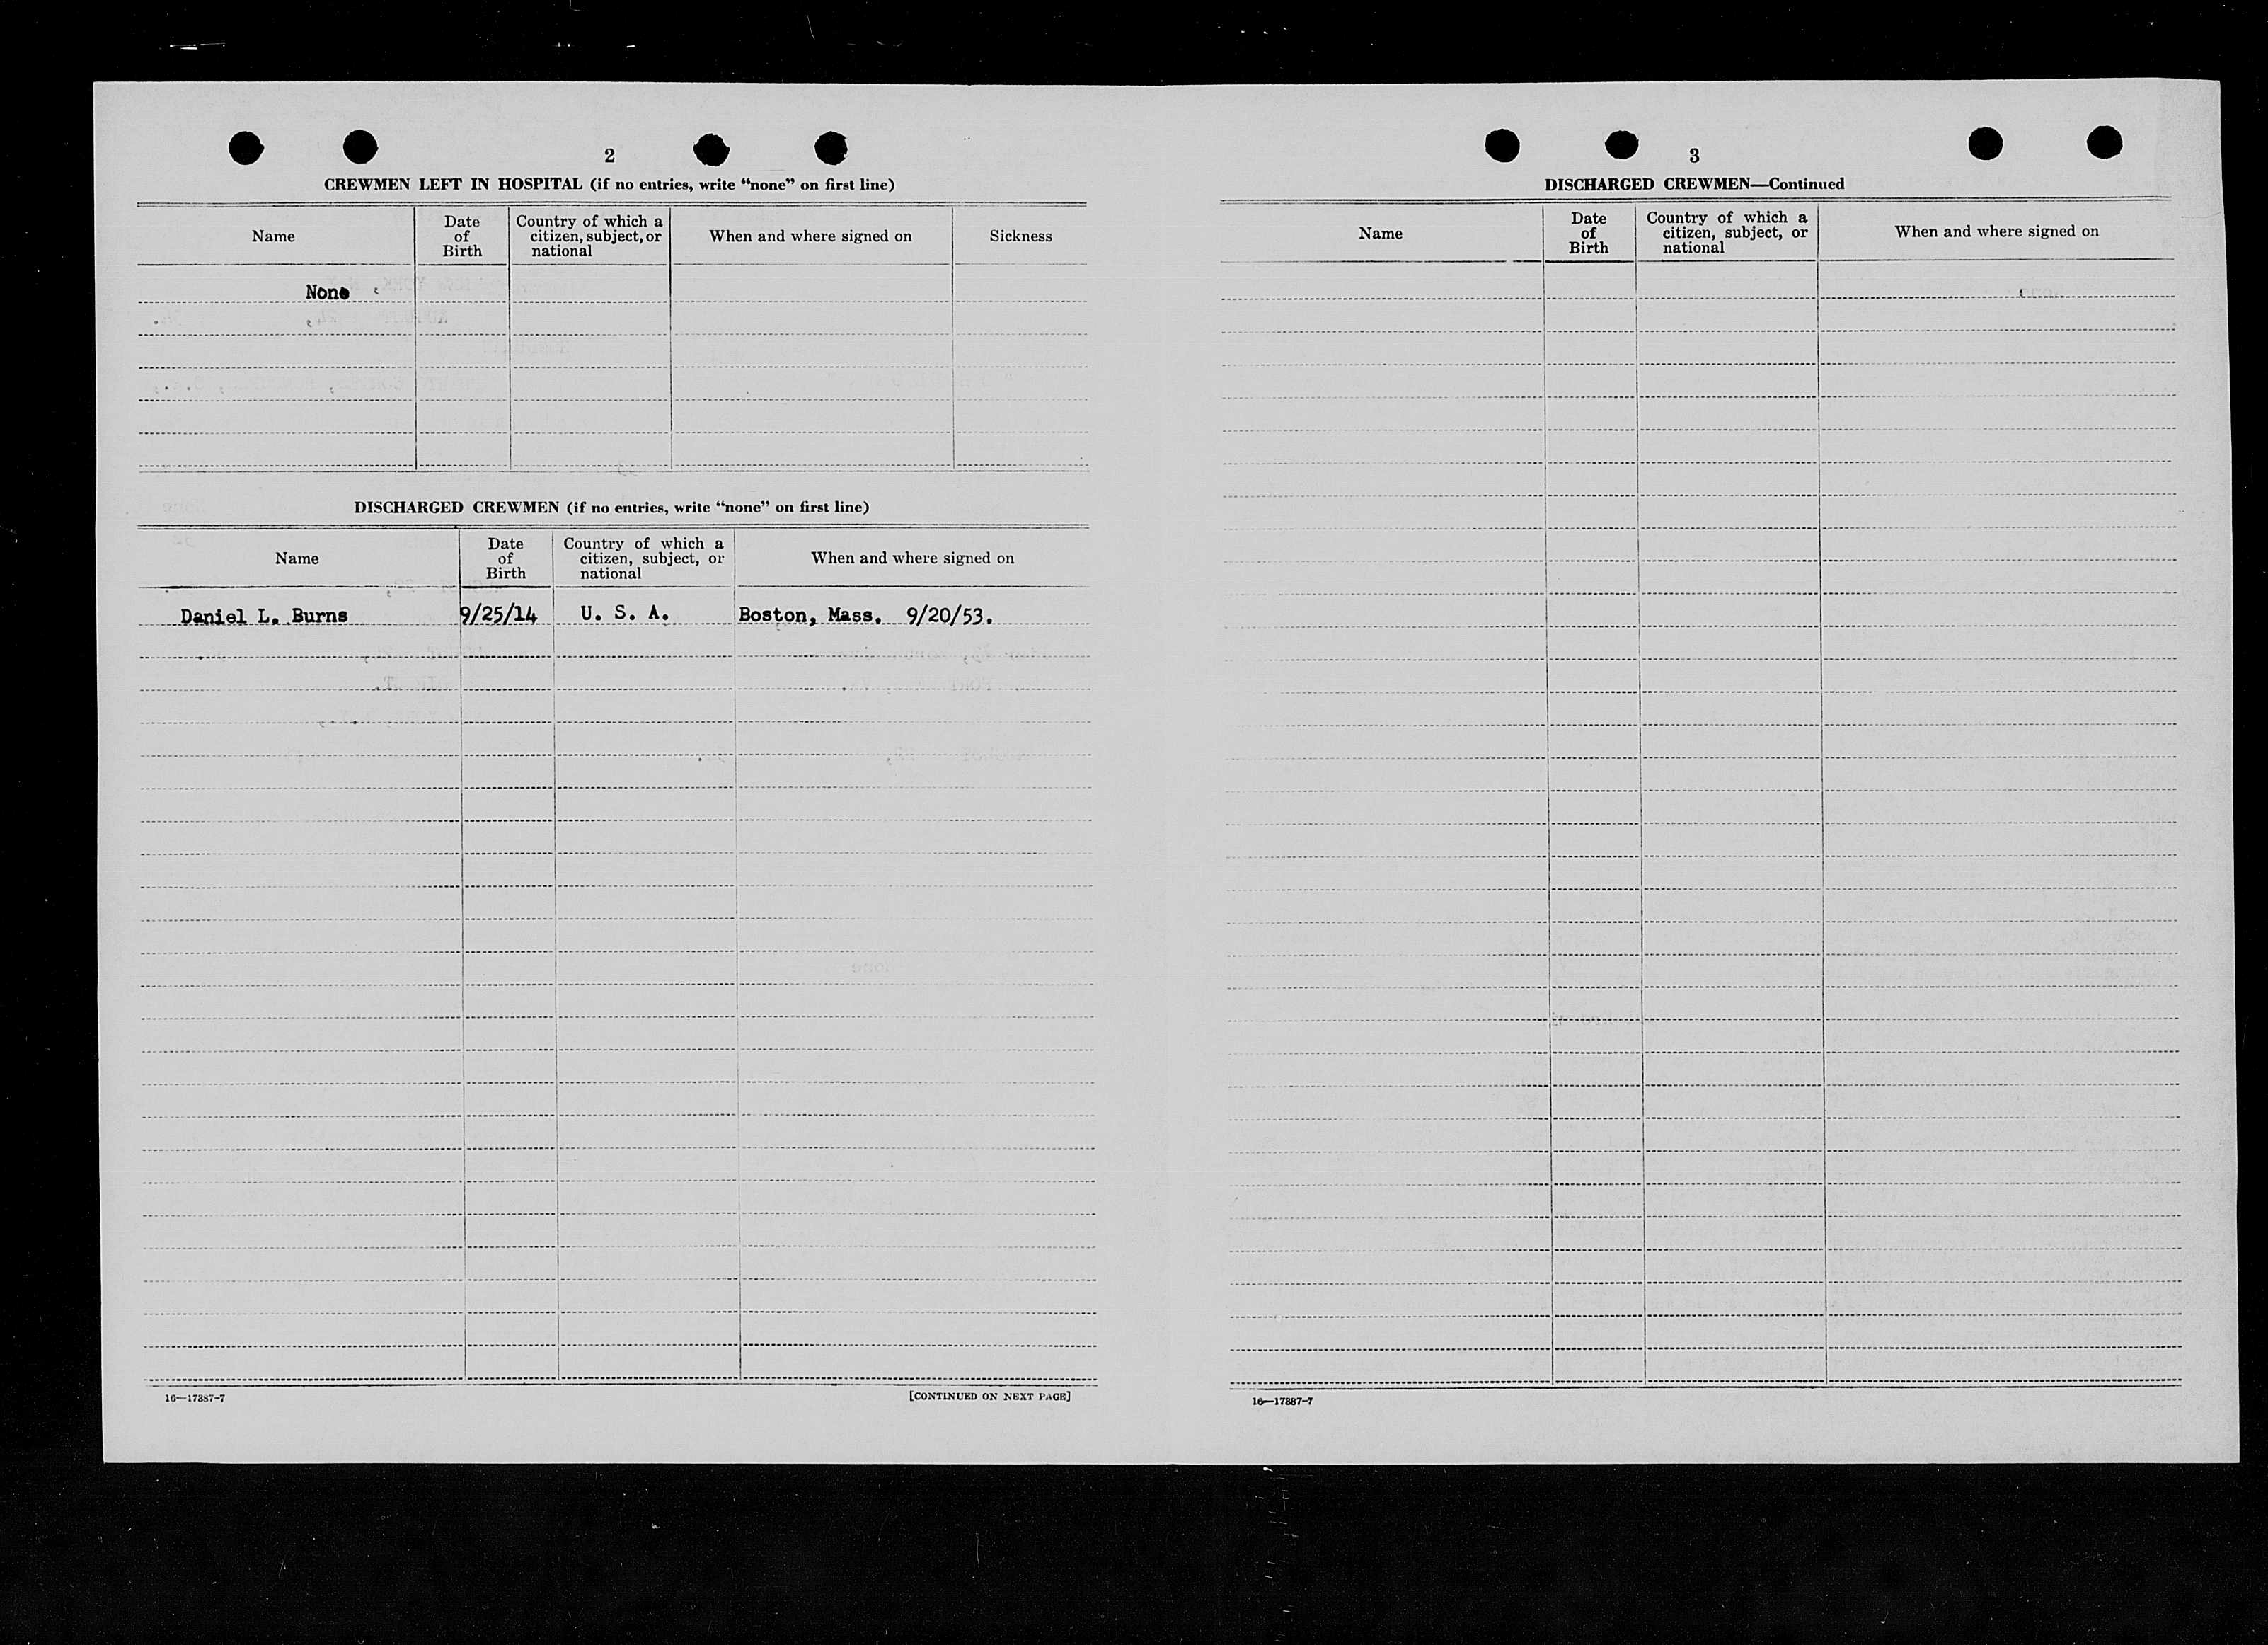 2
CREWMEN LEFT IN HOSPITAL (if no entries, write "none" on first line)
Name
Date of Birth
Country of which a citizen, subject, or national
When and where signed on
Sickness
None
DISCHARGED CREWMEN (if no entries, write "none" on first line)
Name
Date of Birth
Country of which a citizen, subject, or national
When and where signed on
Daniel L. Burns 9/25/14 U. S. A. Boston, Mass. 9/20/53.
16—17387-7
[CONTINUED ON NEXT PAGE]
3
DISCHARGED CREWMEN—Continued
Name
Date of Birth
Country of which a citizen, subject, or national
When and where signed on
16—17387-7